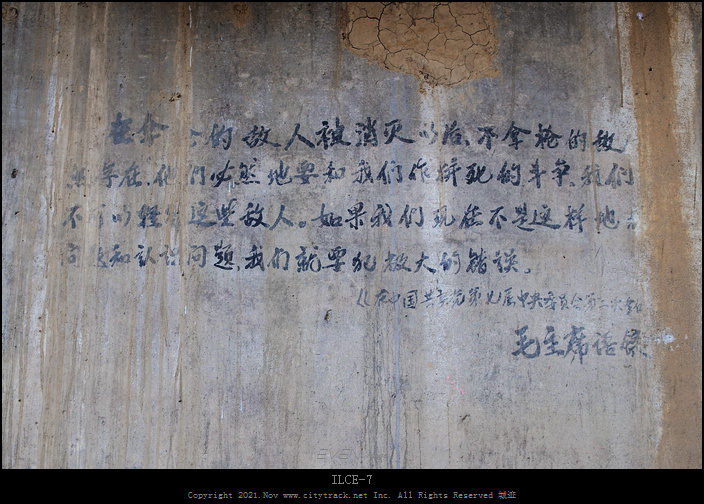 在拿 的敌人被消灭以后,不拿枪的敌
然存在,他们必然地要和我们作拼死的斗争,我们
不可以轻 这些敌人。如果我们现在不是这样地
问题和认识问题,我们就要犯极大的错误。
《在中国共产党第七届中央委员会第二次
毛主席语录
ILCE-7
Copyright 2021.Nov www.citytrack.net Inc. All Rights Reserved 城迹